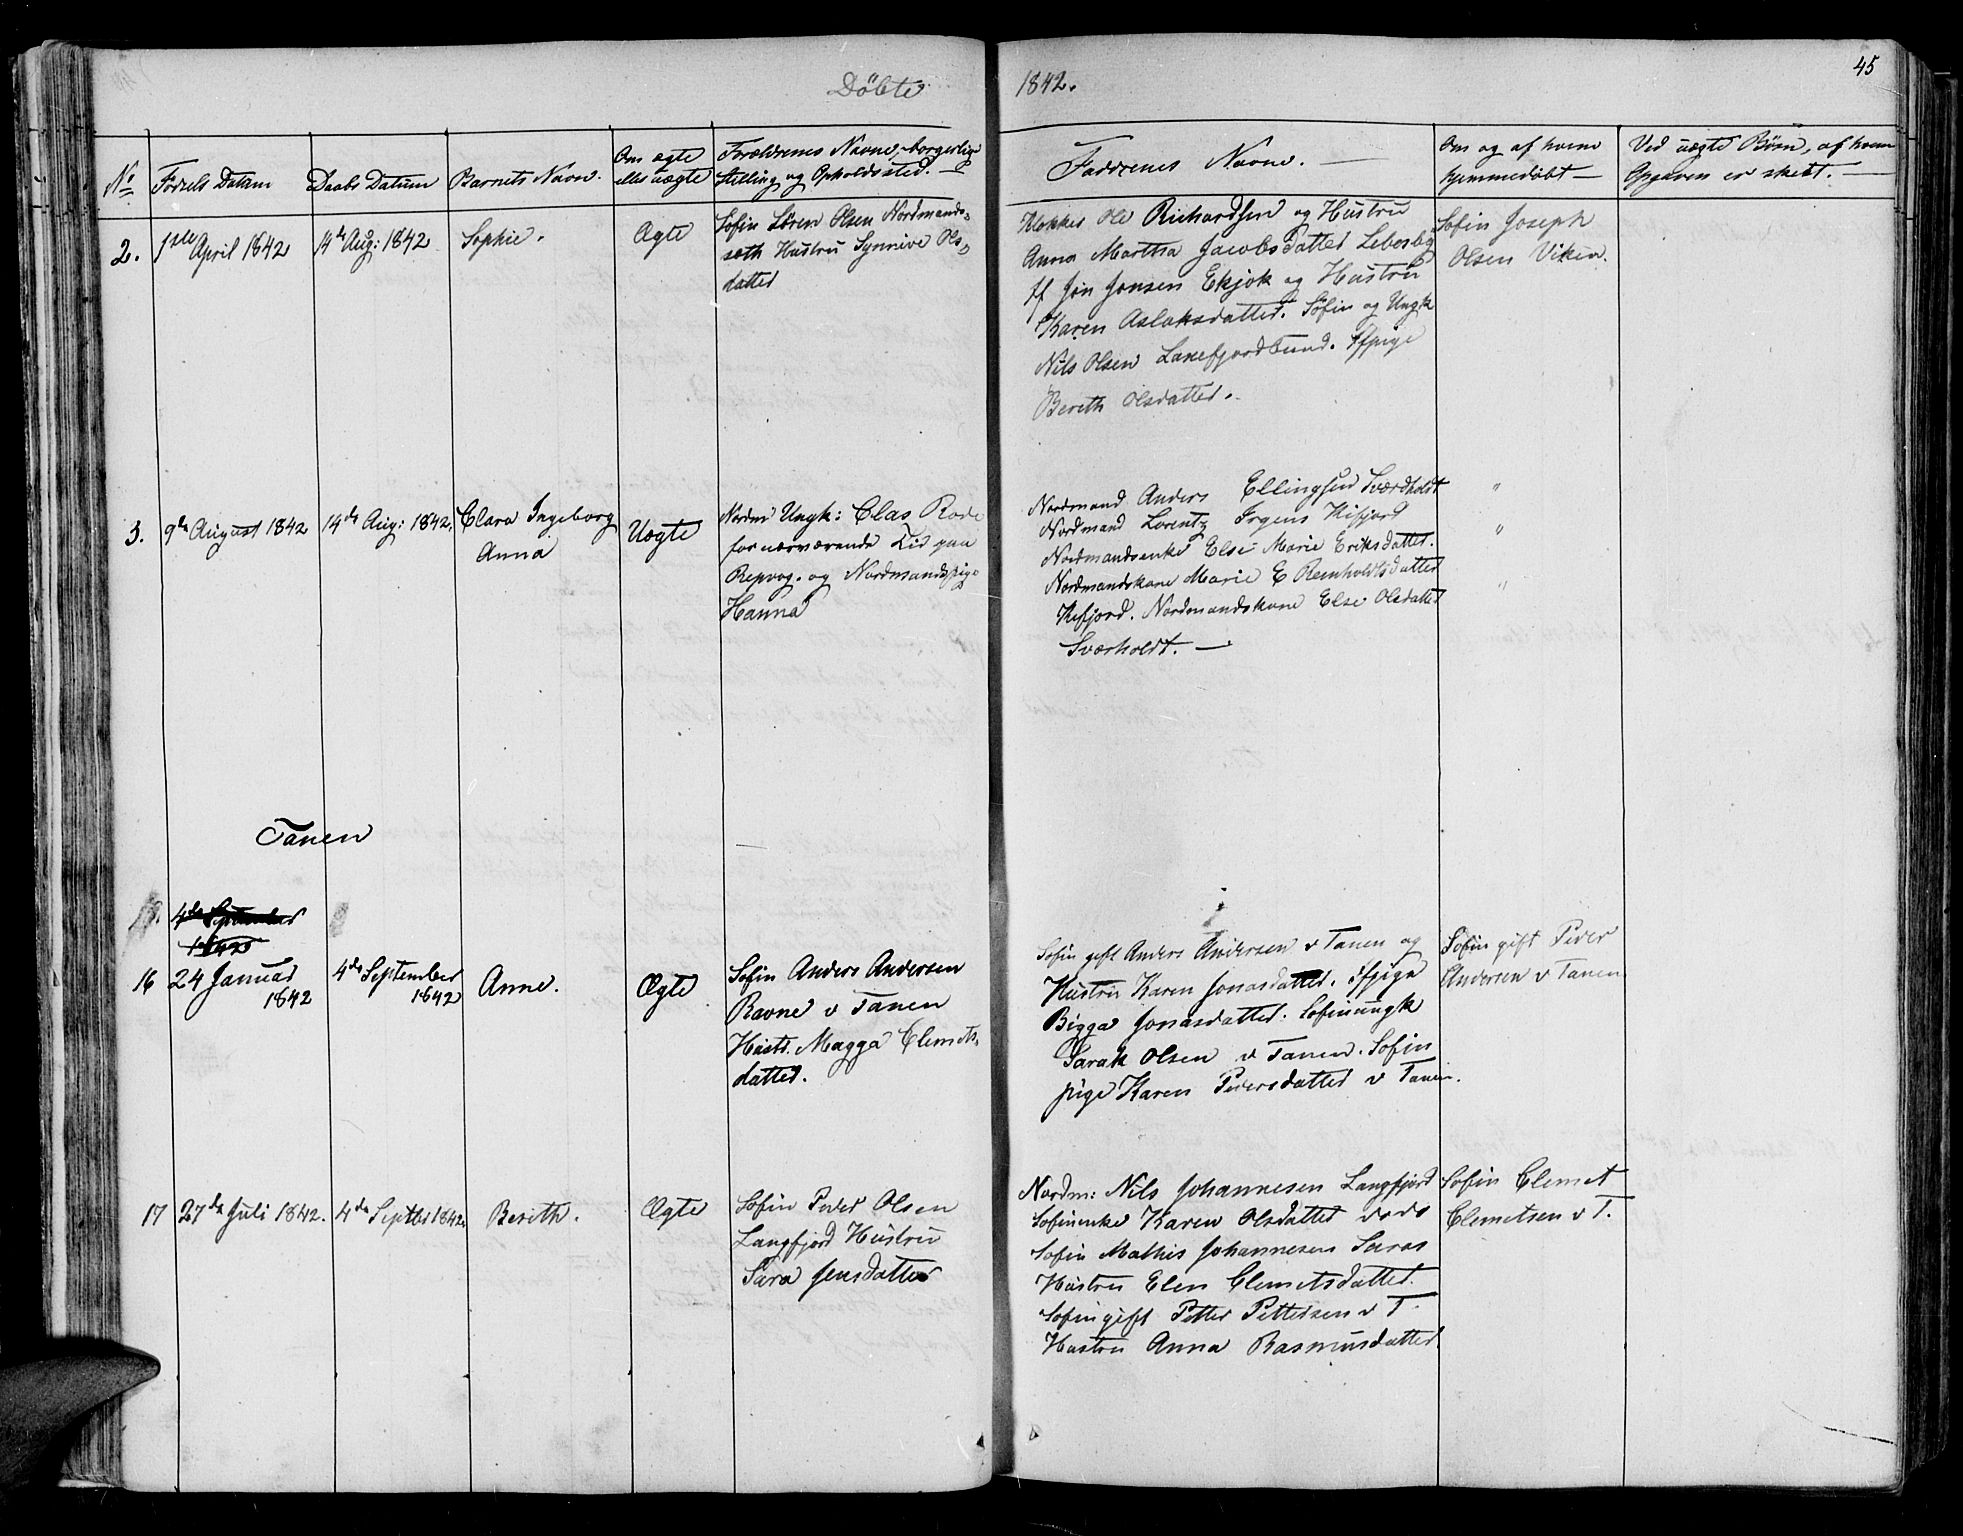 Döbte 1842. 45
No Fødsels Datum Daabs Datum Barnets Navn. Om ægte eller uægte Forældrenes Navne, borgerlige Stilling og Opholdssted. Faddrenes Navne. Om og af hvem hjemmedøbt Ved uægte Børn, af hvem Opgaven er skeet.
2. 1ste April 1842 14de Aug: 1842 Sophie. Ægte
Sofin Sören Olsen Nordmands=
sæth Hustru Synnive Ols=
datter
Klokker Ole Richardsen og Hustru
Anna Martha Jacobsdatter Lebesby
Jon Jonsen Ekjok og Hustru
Karen Aslaksdatter. Söfin og Ungk
Nils Olsen Laxefjordbund. Sfpige
Bereth Olsdatter.
Sofin Joseph
Olsen Viken.
3. 9de August 1842 14de Aug: 1842. Clara Ingeborg
Anna
Uægte
Nordm Ungk: Clas Rode
for nærværende Tid paa
Repvog. og Nordmandspige
Hanna
Nordmand Anders Ellingsen Sværdholdt
Nordmand Lorentz Irgens Kifjord
Nordmandsenke Else Marie Eriksdatter.
Nordmandskone Marie E Remholdtsdatter
Kifjord. Nordmandskone Else Olsdatter
Sværholdt.
"
"
"
Tanen
4de September
1842
16 24 Januar
1842
4de September
1842
Anne. Ægte
Sofin Anders Andersen
Ravne v Tanen
Hustr. Magga Clemets=
datter.
Sofin gift Anders Andersen v Tanen og
Hustru Karen Jonasdatter. Sfpige
Bigga Jonasdatter. Sofinungk
Sarak Olsen v Tanen. Sofin
pige Karen Pedersdatter v Tanen.
Sofin gift Peder
Andersen v Tanen
17 27de Juli 1842. 4de Septber 1842. Bereth. Ægte
Sofin Peder Olsen
Langfjord Hustru
Sara Jensdatter
Nordm: Nils Johannesen Langfjord
Sofinenke Karen Olsdatter
Sofin Mathis Johannesen
Hustru Elen Clemetsdatter.
Sofin gift Petter Pettersen v T.
Hustru Anna Rasmusdatter.
Sofin Clemet
Clemetsen v T.